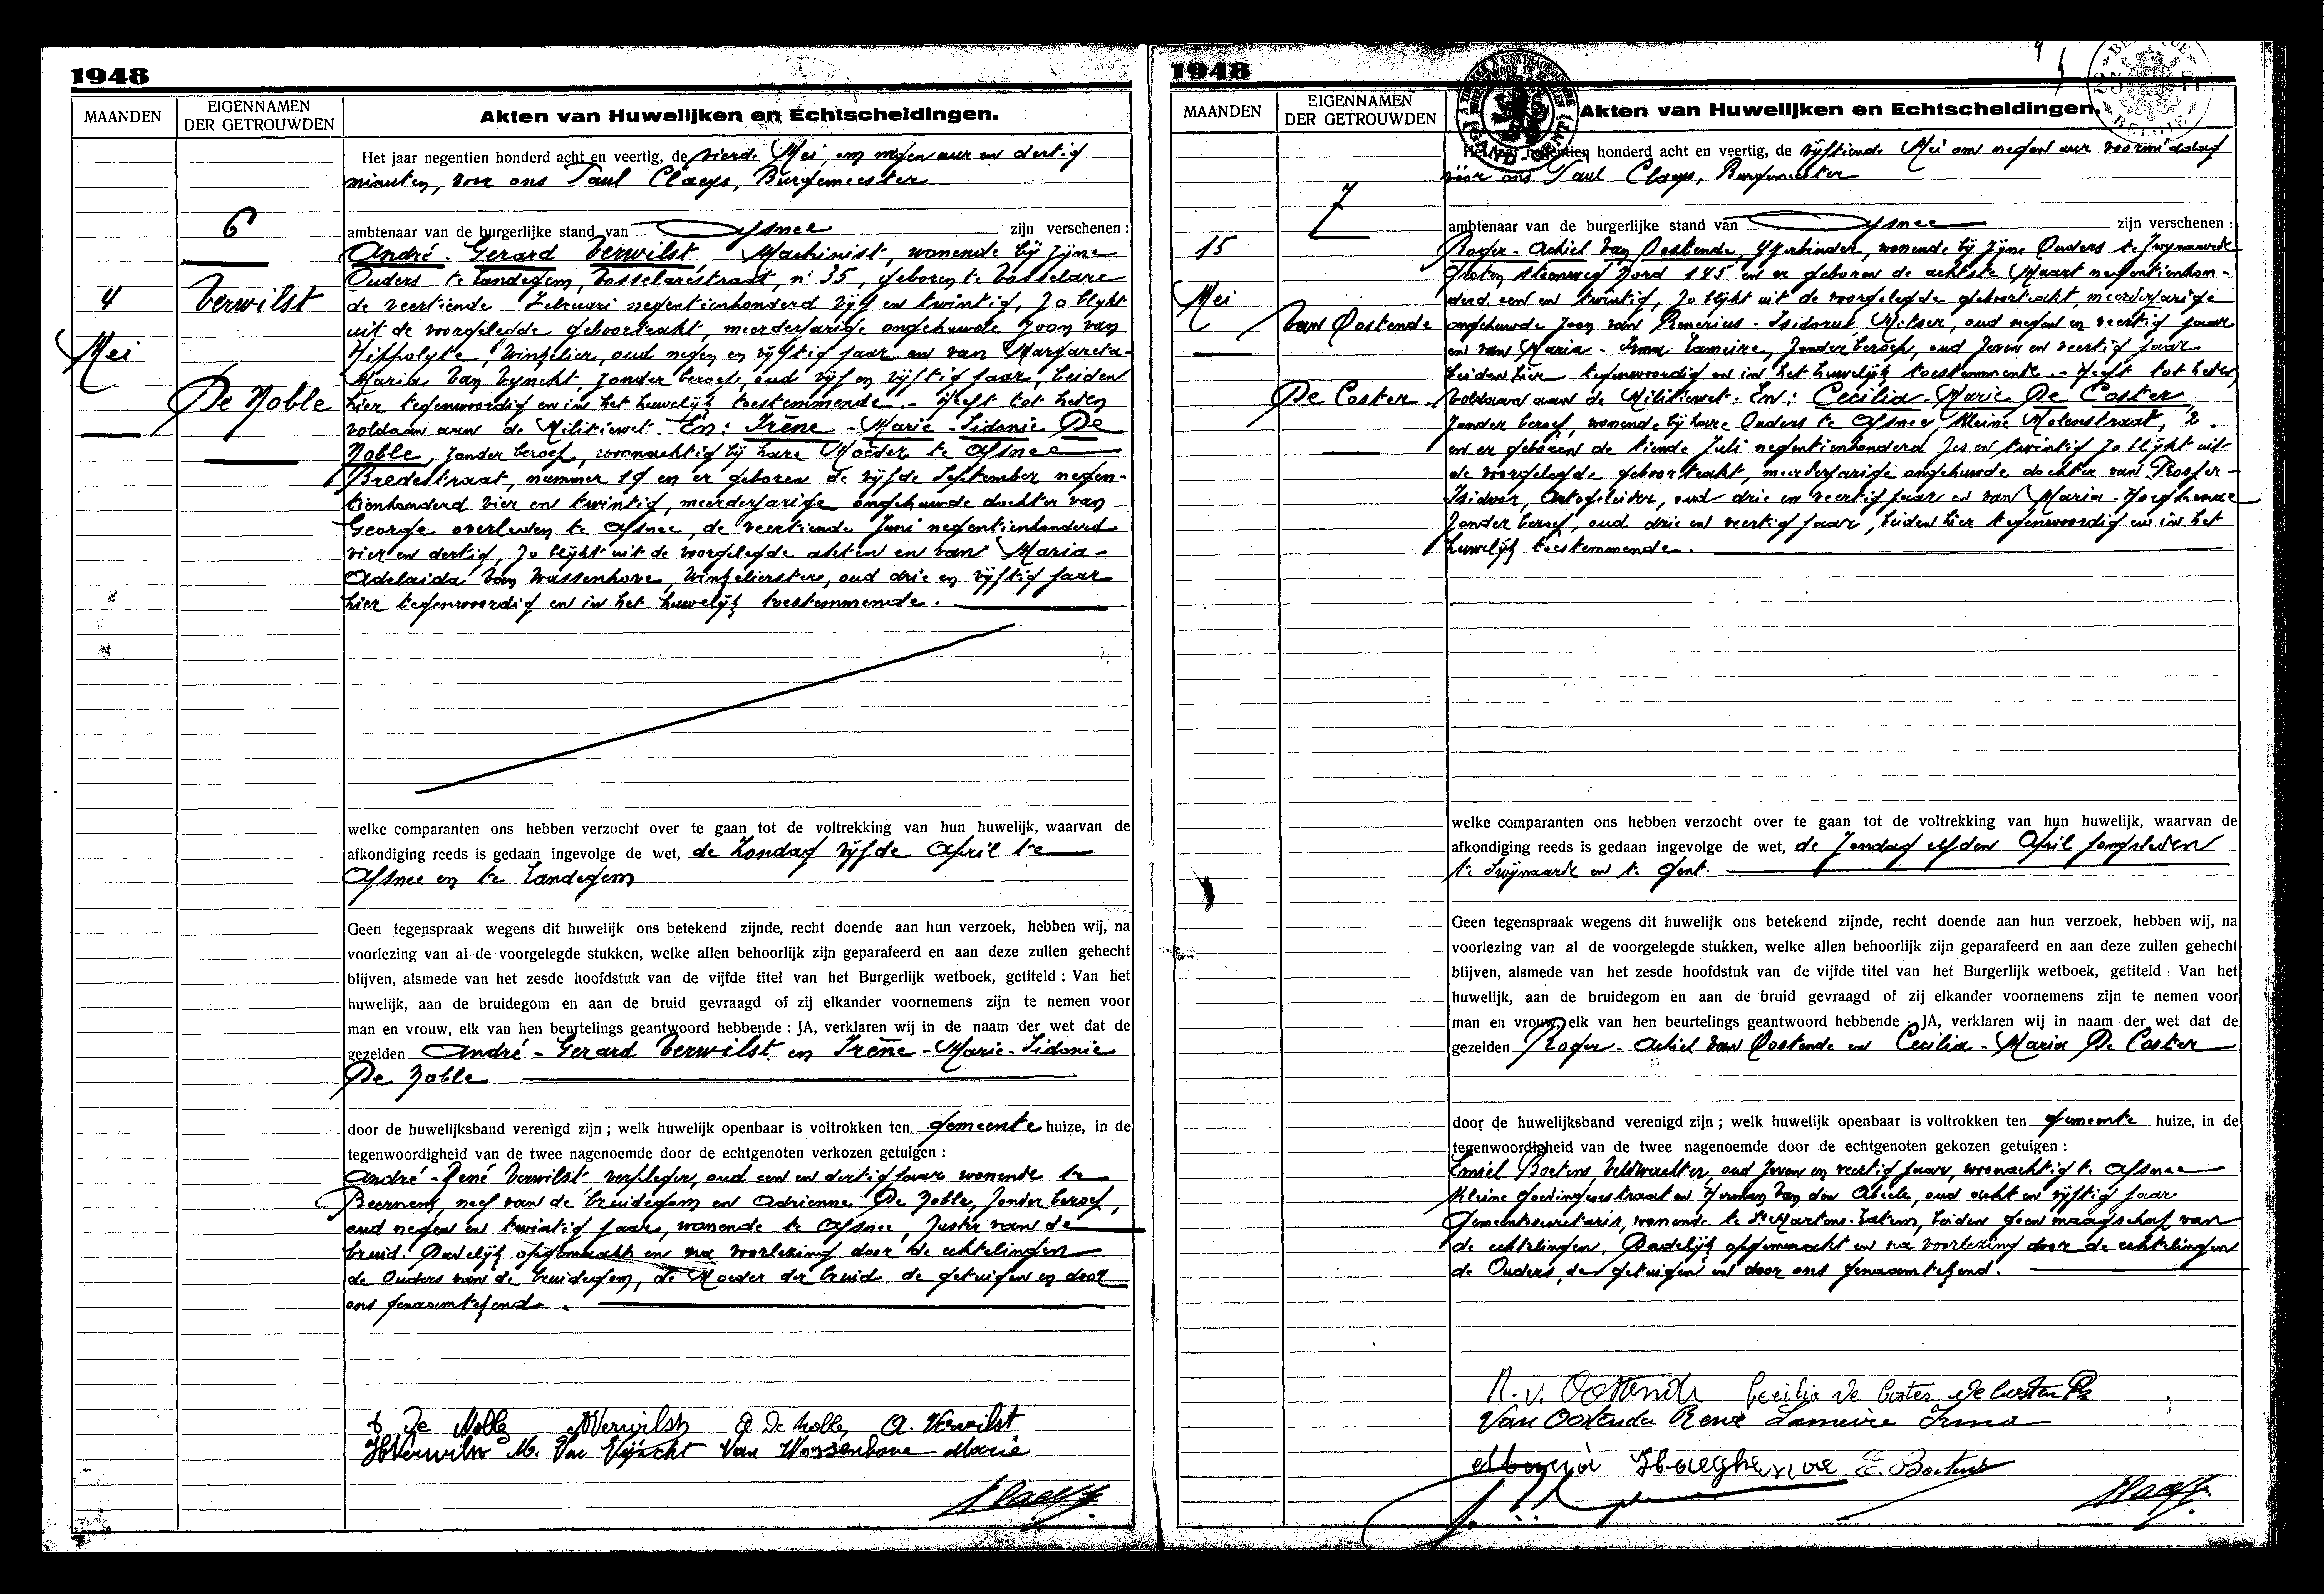 1948
MAANDEN
EIGENNAMEN
DER GETROUWDEN
Akten van Huwelijken en Echtscheidingen.
Het jaar negentien honderd acht en veertig, de vierde Mei, om negen uur en dertig
minuten, voor ons Paul Claeys, Burgemeester
6
ambtenaar van de burgerlijke stand van Afsnee zijn verschenen :
André - Gerard Verwilst, Machinist, wonende bij zijne
Ouders te Landegem, Vosselarestraat, n° 35, geboren te Vosselare
4
Verwilst
de veertiende Februari negentienhonderd vijf en twintig, zo blijkt
uit de voorgelegde geboorteakt, meerderjarige ongehuwde zoon van
Mei
Hippolyte, Winkelier, oud negen en vijftig jaar en van Margareta-
Maria Van Vynckt, zonder beroep, oud vijf en vijftig jaar, beiden
De Noble
hier tegenwoordig en in het huwelijk toestemmende. - Heeft tot heden
voldaan aan de Militiewet. En: Irène - Marie - Sidonie De
Noble, zonder beroep, woonachtig bij hare Moeder te Afsnee
Bredestraat, nummer 19 en er geboren de vijfde September negen-
tienhonderd vier en twintig, meerderjarige ongehuwde dochter van
George overleden te Afsnee, de veertiende Juni negentienhonderd
vier en dertig, zo blijkt uit de voorgelegde akten en van Maria-
Adelaida Van Wassenhove, Winkelierstere, oud drie en vijftig jaar
hier tegenwoordig en in het huwelijk toestemmende.
welke comparanten ons hebben verzocht over te gaan tot de voltrekking van hun huwelijk, waarvan de
afkondiging reeds is gedaan ingevolge de wet, de Zondag vijfde April te
Afsnee en te Landegem
Geen tegenspraak wegens dit huwelijk ons betekend zijnde, recht doende aan hun verzoek, hebben wij, na
voorlezing van al de voorgelegde stukken, welke allen behoorlijk zijn geparafeerd en aan deze zullen gehecht
blijven, alsmede van het zesde hoofdstuk van de vijfde titel van het Burgerlijk wetboek, getiteld : Van het
huwelijk, aan de bruidegom en aan de bruid gevraagd of zij elkander voornemens zijn te nemen voor
man en vrouw, elk van hen beurtelings geantwoord hebbende : JA, verklaren wij in de naam der wet dat de
gezeiden André - Gerard Verwilst en Irène - Marie - Sidonie
De Noble
door de huwelijksband verenigd zijn ; welk huwelijk openbaar is voltrokken ten gemeente huize, in de
tegenwoordigheid van de twee nagenoemde door de echtgenoten verkozen getuigen :
André - René Verwilst verpleger, oud een en dertig jaar wonende te
Beernem, neef van de bruidegom en Adrienne De Noble, zonder beroep,
oud negen en twintig jaar, wonende te Afsnee, zuster van de
bruid. Dadelijk opgemaakt en na voorlezing door de echtelingen
de Ouders van de bruidegom, de Moeder der bruid de getuigen en door
ons genaamtekend.
De Noble AVerwilst A. De Noble A. Verwilst
HVerwilst M. Van Vijnckt Van Wassenhove Marie
1948
MAANDEN
EIGENNAMEN
DER GETROUWDEN
Akten van Huwelijken en Echtscheidingen.
Het jaar negentien honderd acht en veertig, de vijftiende Mei om negen uur voormiddag
vóór ons Paul Claeys, Burgemeester
7
ambtenaar van de burgerlijke stand van Afsnee zijn verschenen :
15
Roger - Achiel Van Oostende, IJzerbinder, wonende bij zijne Ouders te Zwijnaarde
Groten Steenweg Noord 145 en er geboren de achtste Maart negentienhon-
Mei
derd een en twintig, zo blijkt uit de voorgelegde geboorteakt, meerderjarige
Van Oostende
ongehuwde zoon van Renerius - Isidorus, Metser, oud negen en veertig jaar
en van Maria - Irma Lameire, zonder beroep, oud zeven en veertig jaar
beiden hier tegenwoordig en in het huwelijk toestemmende. - Heeft tot heden
De Coster
voldaan aan de Militiewet. En: Cecilia - Marie De Coster,
zonder beroep, wonende bij hare Ouders te Afsnee Kleine Molenstraat, 2.
en er geboren de tiende Juli negentienhonderd zes en twintig zo blijkt uit
de voorgelegde geboorteakt, meerderjarige ongehuwde dochter van Prosper-
Isidoor, Autogeleider, oud drie en veertig jaar en van Maria - Haeghenae
zonder beroep, oud drie en veertig jaar, beiden hier tegenwoordig en in het
huwelijk toestemmende.
welke comparanten ons hebben verzocht over te gaan tot de voltrekking van hun huwelijk, waarvan de
afkondiging reeds is gedaan ingevolge de wet, de Zondag elfden April jongsleden
te Zwijnaarde en te Gent.
Geen tegenspraak wegens dit huwelijk ons betekend zijnde, recht doende aan hun verzoek, hebben wij, na
voorlezing van al de voorgelegde stukken, welke allen behoorlijk zijn geparafeerd en aan deze zullen gehecht
blijven, alsmede van het zesde hoofdstuk van de vijfde titel van het Burgerlijk wetboek, getiteld : Van het
huwelijk, aan de bruidegom en aan de bruid gevraagd of zij elkander voornemens zijn te nemen voor
man en vrouw, elk van hen beurtelings geantwoord hebbende : JA, verklaren wij in naam der wet dat de
gezeiden Roger - Achiel Van Oostende en Cecilia - Maria De Coster
door de huwelijksband verenigd zijn ; welk huwelijk openbaar is voltrokken ten gemeente huize, in de
tegenwoordigheid van de twee nagenoemde door de echtgenoten gekozen getuigen :
Emiel Boetens, Veldwachter, oud zeven en veertig jaar, woonachtig te Afsnee
Kleine Goedingenstraat en Herman Van den Abeele, oud acht en vijftig jaar
Gemeentesecretaris, wonende te St Martens-Latem, beiden geen maagschap van
de echtelingen. Dadelijk opgemaakt en na voorlezing door de echtelingen
de Ouders, de getuigen en door ons genaamtekend.
R. V. Oostende Cecilia De Coster De Coster Pr
Van Oostende René Lameire Irma
Maria Haeghenae E. Boetens